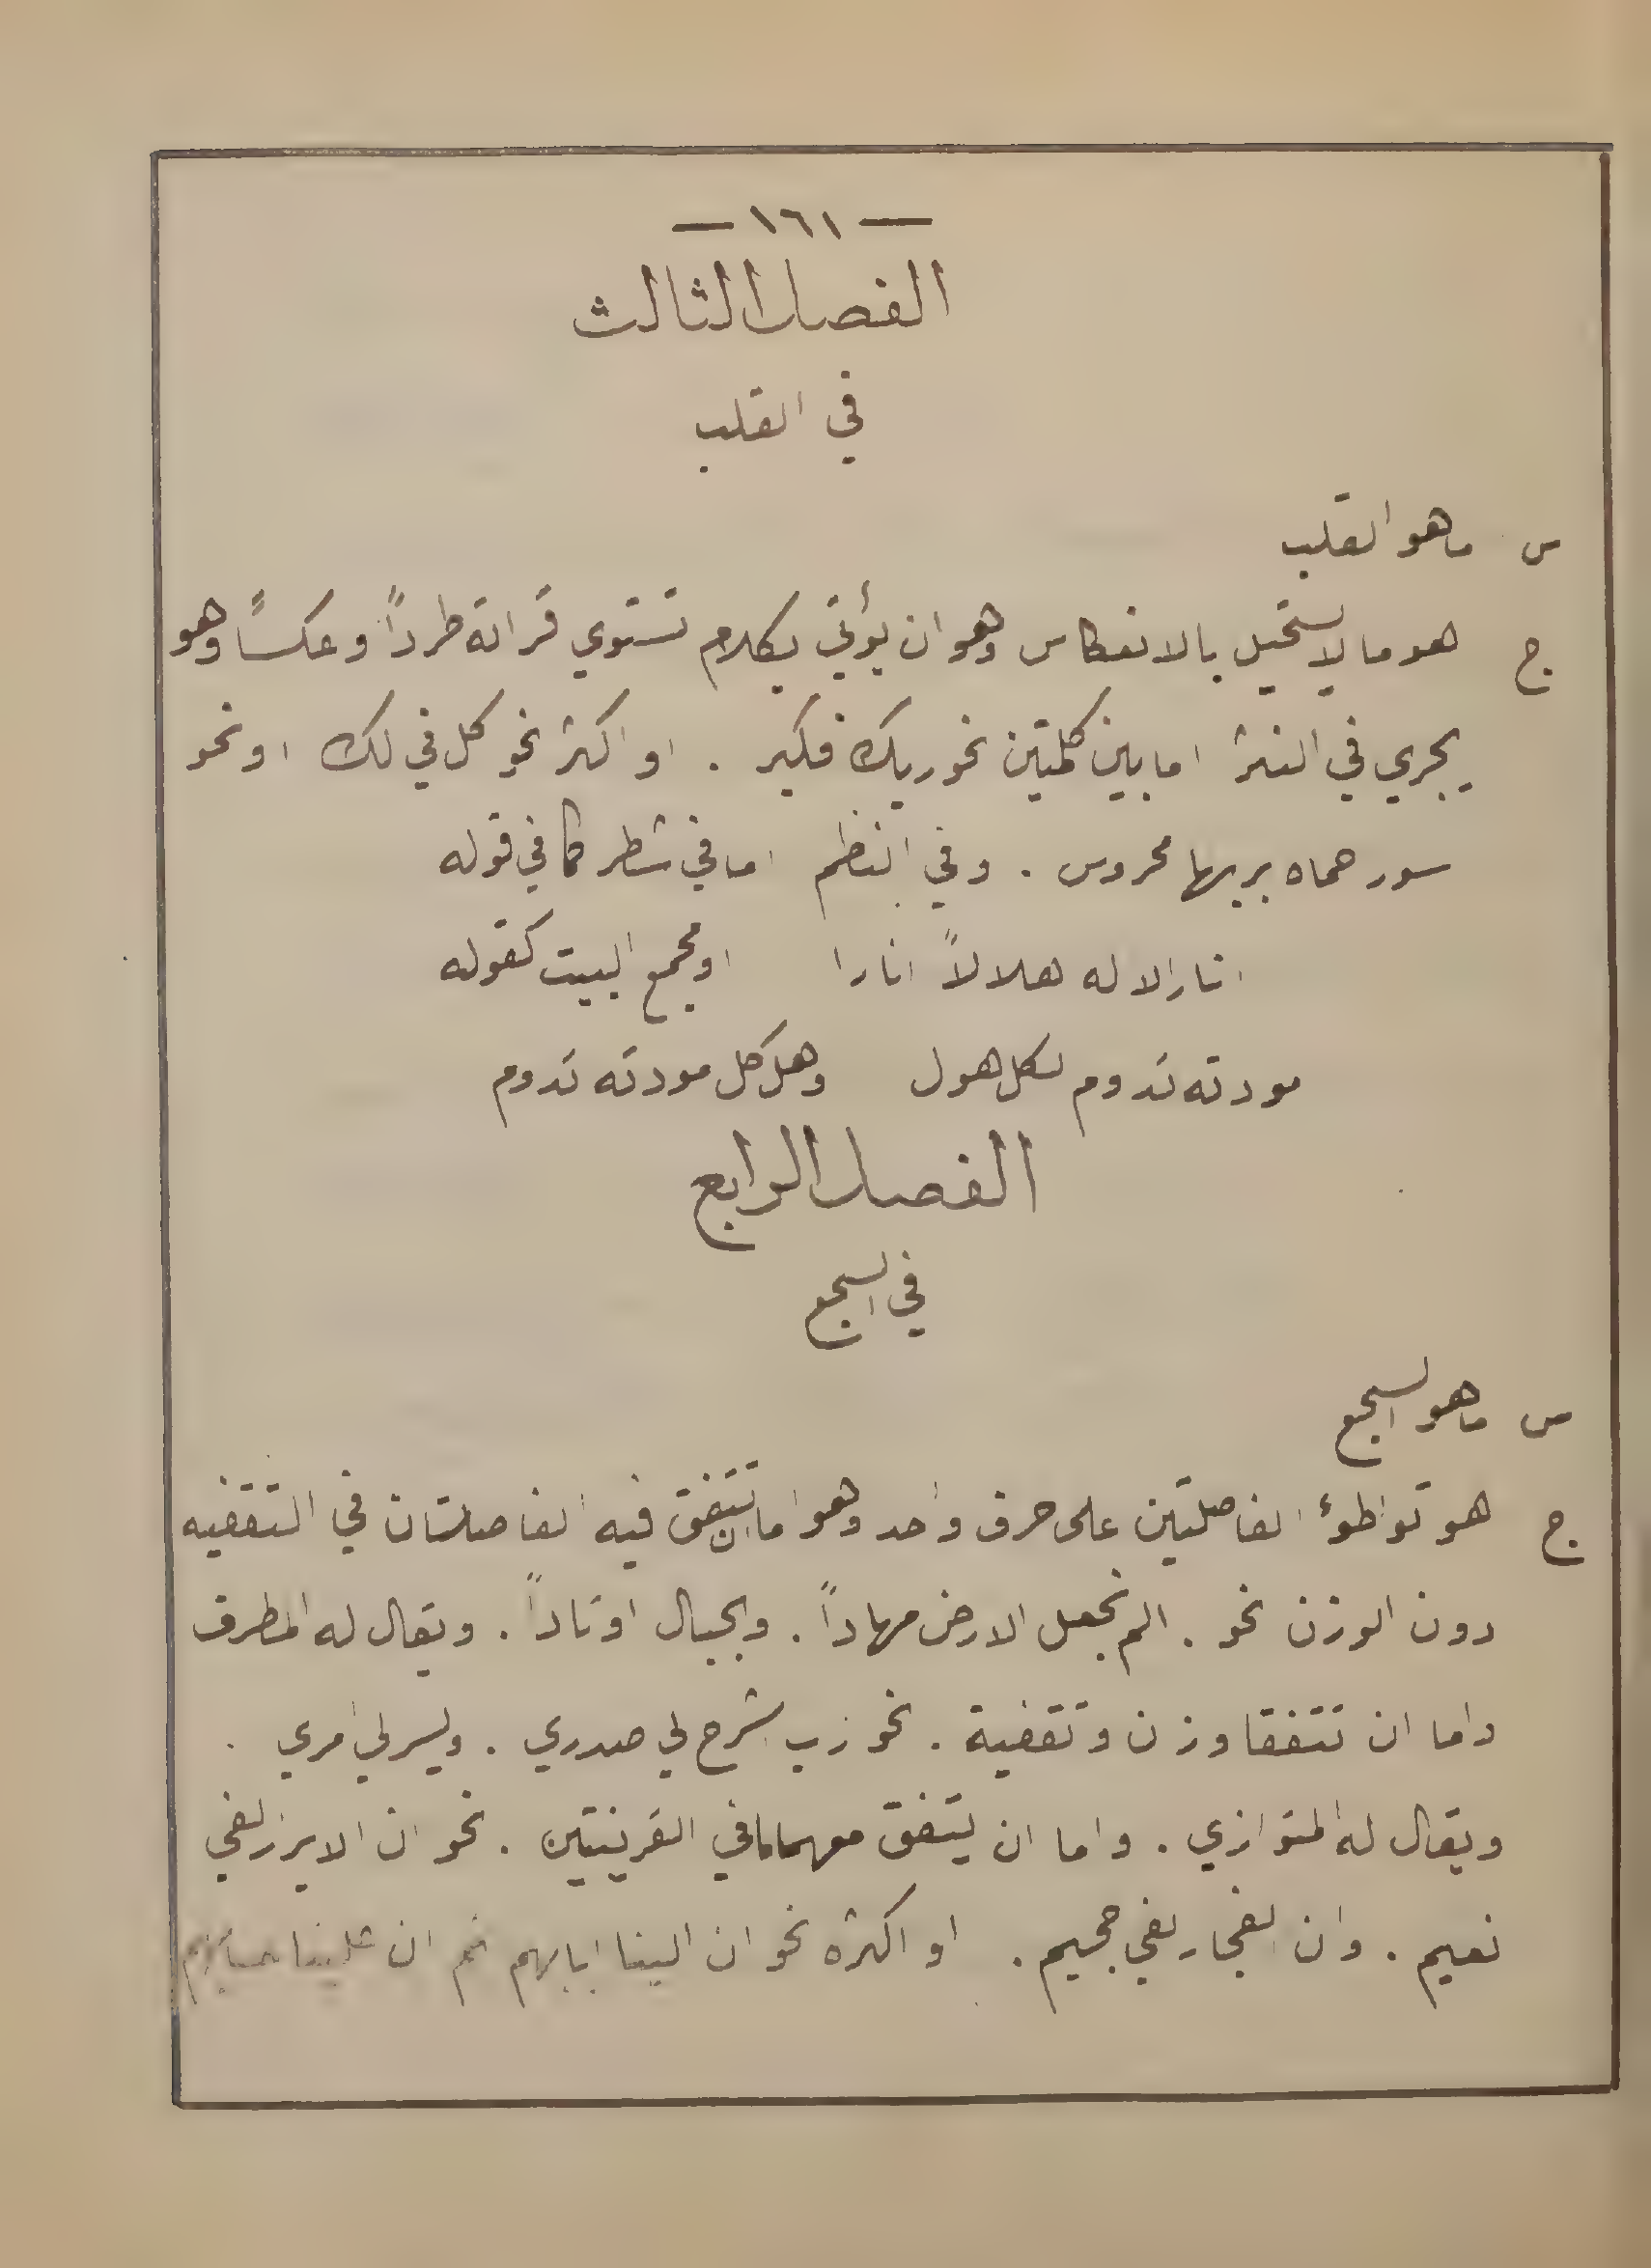 — ١٦١ —
الفصل الثالث
في القلب
س ما هو القلب
ج هو ما لا يستحيل بالانعكاس وهو ان يؤتى بكلام تستوي قراته طرداً وعكساً وهو
يجري في النثر اما بين كلمتين نحو ربك فكبر . او اكثر نحو كل في لك او نحو
سور حماه بربها محروس . وفي النظم اما في شطر كما في قوله
انار الاله هلالاً انارا او مجمع البيت كقوله
مودته تدوم لكل هول وهل كل مودته تدوم
الفصل الرابع
في السجع
س ما هو السجع
ج هو تواطوء الفاصلتين على حرف واحد وهو اما ان تتفق فيه الفاصلتان في التقفيه
دون الوزن نحو . الم نجعل الارض مهاداً . والجبال اوتاداً . ويقال له المطرف
واما ان تتفقا وزن وتقفية . نحو رب اشرح لي صدري . ويسر لي امري .
ويقال له المتوازي . واما ان يتفق معهما ما في القرينتين . نحو ان الابرار لفي
نعيم . وان الفجار لفي جحيم . او اكثره نحو ان الينا ايابهم ثم ان علينا حسابهم